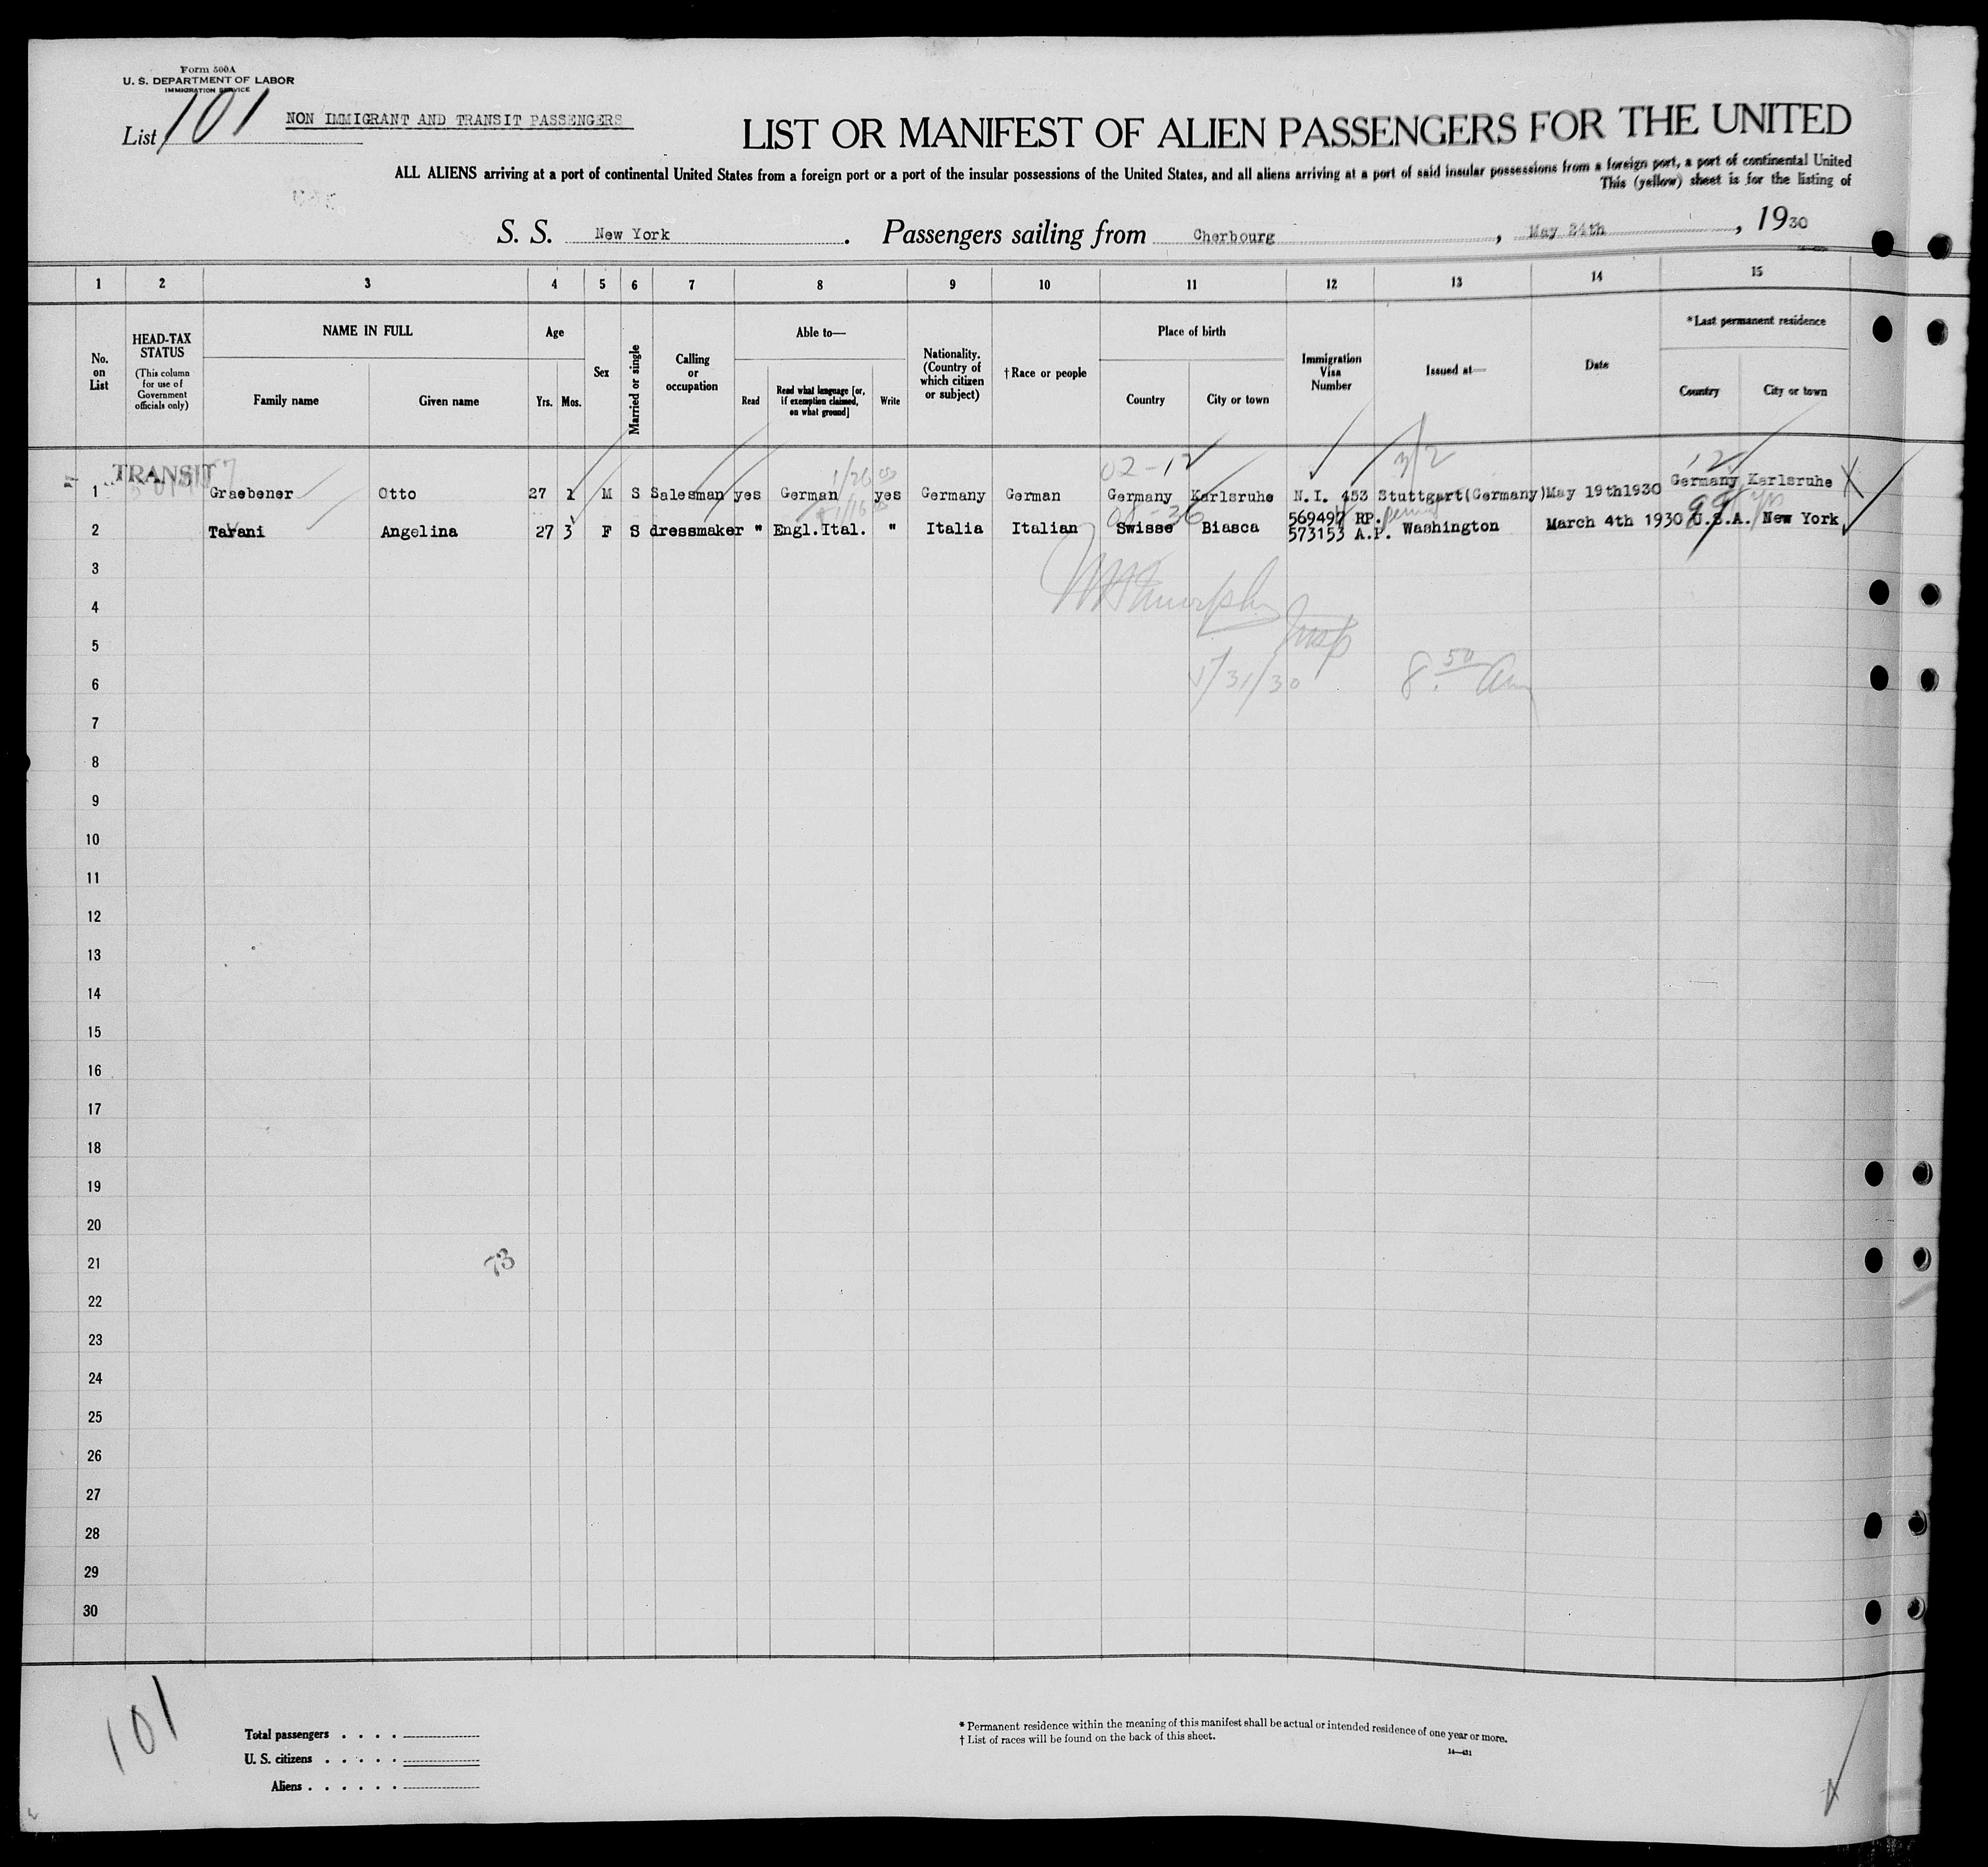 Form 500A
U. S. DEPARTMENT OF LABOR
IMMIGRATION SERVICE
List 101 NON IMMIGRANT AND TRANSIT PASSENGERS
LIST OR MANIFEST OF ALIEN PASSENGERS FOR THE UNITED
ALL ALIENS arriving at a port of continental United States from a foreign port or a port of the insular possessions of the United States, and all aliens arriving at a port of said insular possessions from a foreign port, a port of continental United
This (yellow) sheet is for the listing of
S. S. New York. Passengers sailing from Cherbourg, May 24th, 1930
1 2 3 4 5 6 7 8 9 10 11 12 13 14 15
No. on List
HEAD-TAX STATUS
(This column for use of Government officials only)
NAME IN FULL
Family name Given name
Age
Yrs. Mos.
Sex
Married or single
Calling or occupation
Able to—
Read Read what language [or, if exemption claimed, on what ground] Write
Nationality. (Country of which citizen or subject)
†Race or people
Place of birth
Country City or town
Immigration Visa Number
Issued at—
Date
*Last permanent residence
Country City or town
TRANSIT 1/26 02-12 3/2 12
1 Graebener Otto 27 1 M S Salesman yes German yes Germany German Germany Karlsruhe N.I. 453 Stuttgart(Germany) May 19th1930 Germany Karlsruhe
1/16 08-36 99
2 Tavani Angelina 27 3 F S dressmaker " Engl.Ital. " Italia Italian Swisse Biasca 569497 RP. 573153 A.P. Washington March 4th 1930 U.S.A. New York
3
4
Murphy
5
Insp
6
5/31/30 8.50 am
7
8
9
10
11
12
13
14
15
16
17
18
19
20
21
73
22
23
24
25
26
27
28
29
30
101
Total passengers . . . .
U. S. citizens . . . . .
Aliens . . . . . .
* Permanent residence within the meaning of this manifest shall be actual or intended residence of one year or more.
† List of races will be found on the back of this sheet.
14—431